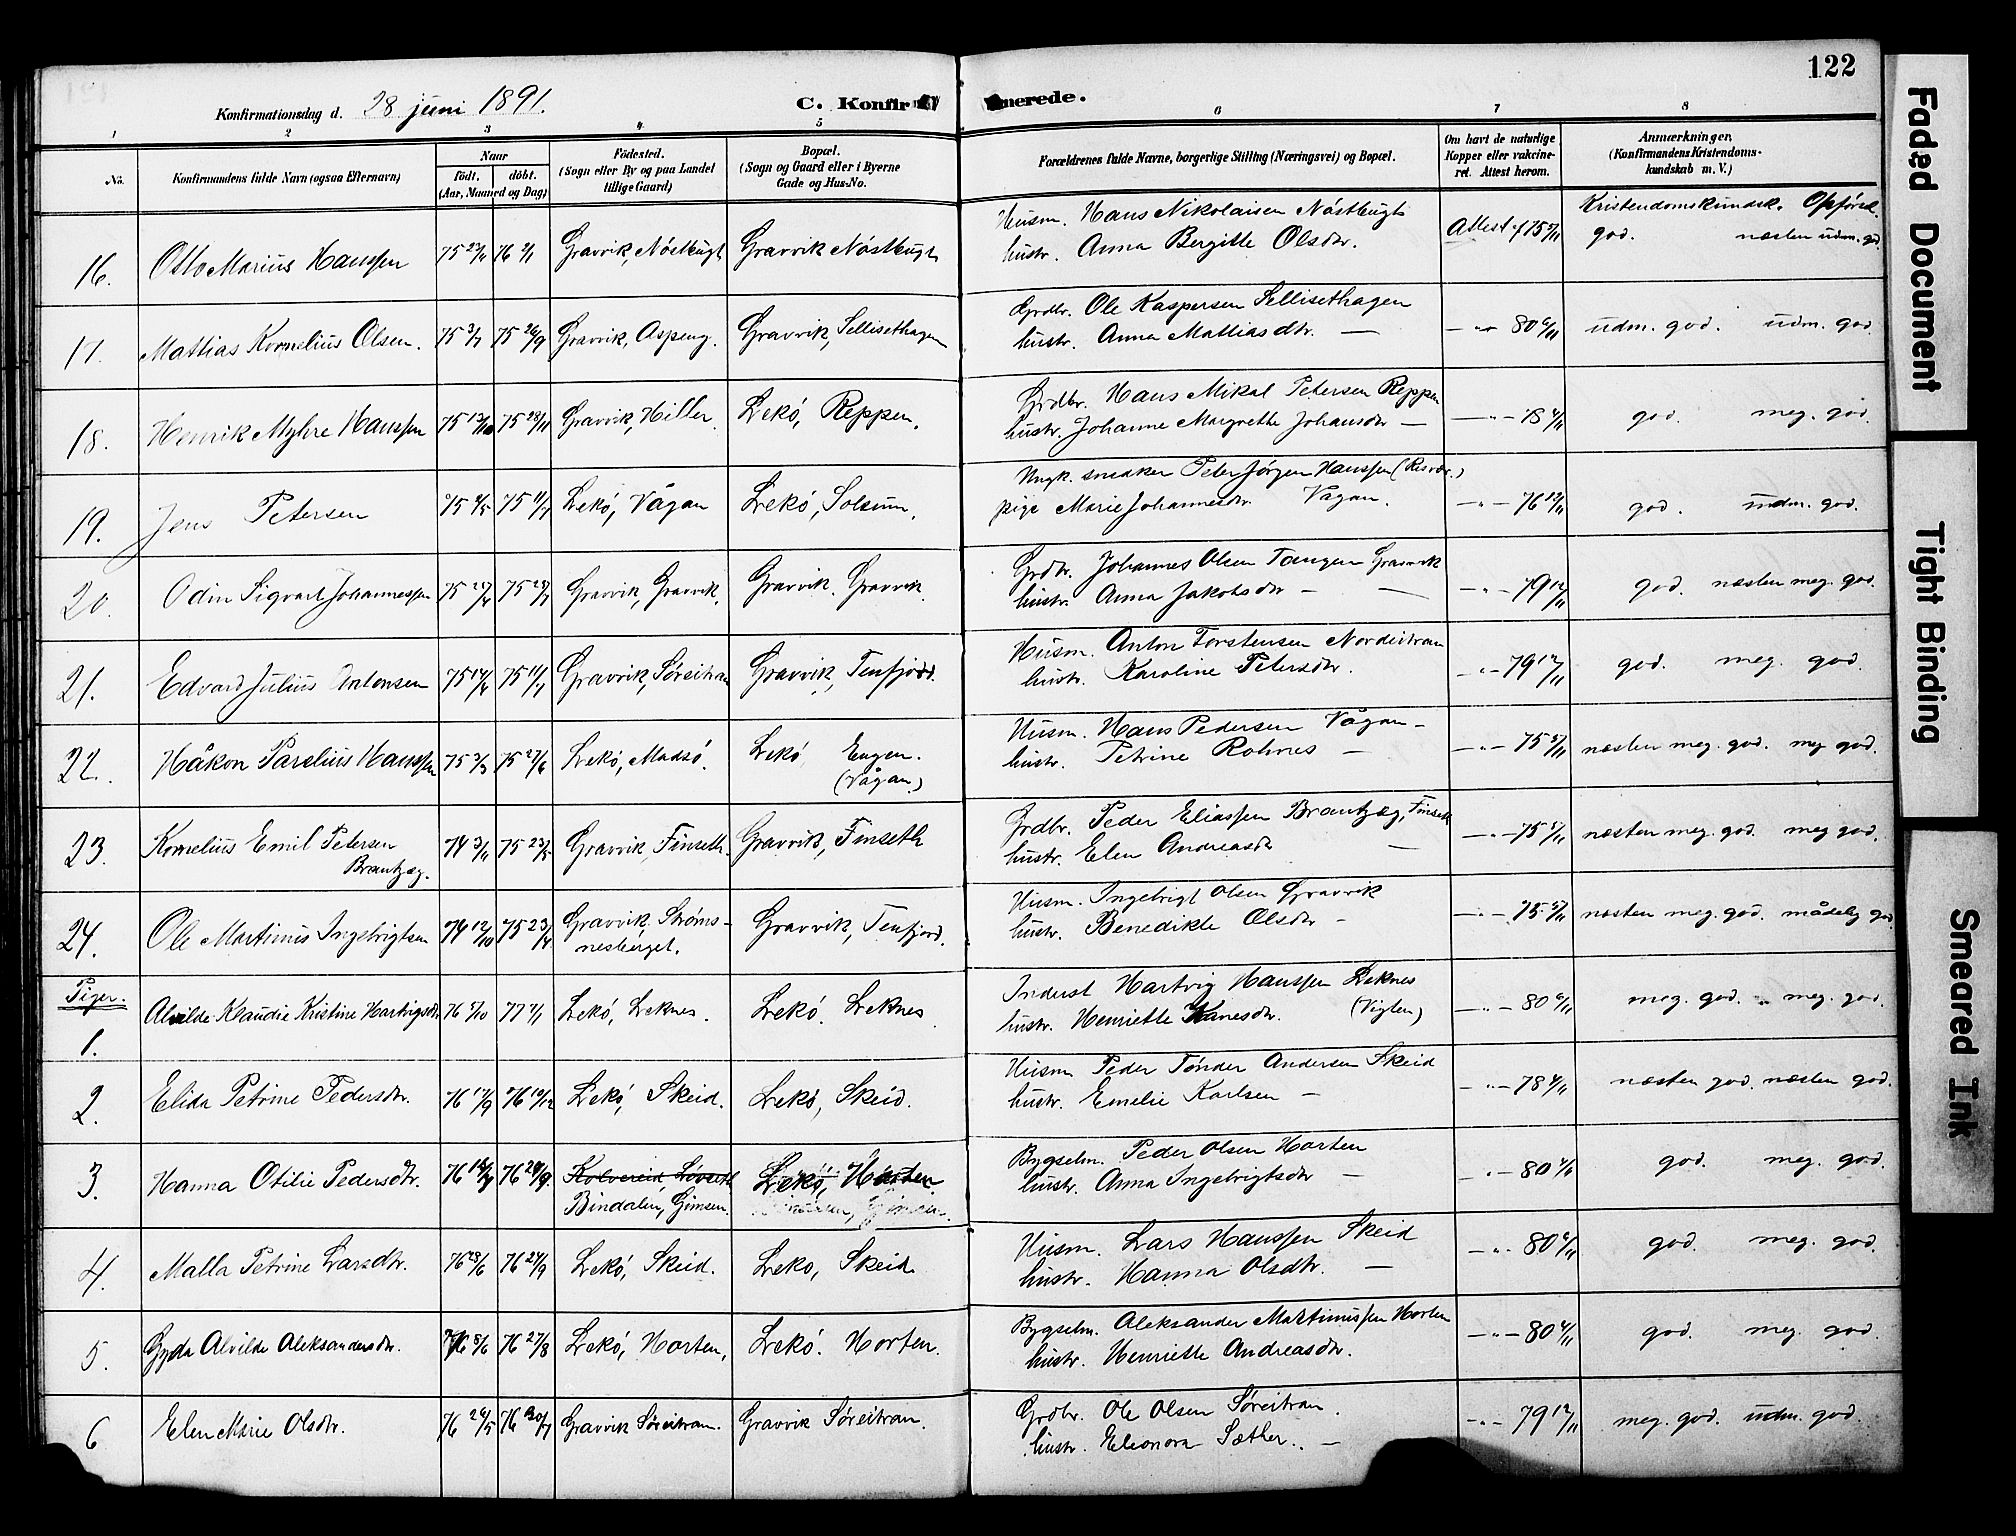 122
Konfirmationsdag d. 28 juni 1891. C. Konfirmerede.
1 2 3 4 5 6 7 8
No. Konfirmandens fulde Navn (ogsaa Efternavn)
Naar
født, døbt.
(Aar, Maaned og Dag)
Fødested.
(Sogn eller By og paa Landet
tillige Gaard)
Bopæl.
(Sogn og Gaard eller i Byerne
Gade og Hus-No.
Forældrenes fulde Navne, borgerlige Stilling (Næringsvei) og Bopæl.
Om havt de naturlige
Kopper eller vakcine-
ret. Attest herom.
Anmærkninger.
(Konfirmandens Kristendoms-
kundskab m. V.)
Kristendomskundsk. Opførsel.
16. Otto Marius Hanssen 76 2/1 Gravvik, Nöstbugt Gravvik Nöstbugt
Husm. Hans Nikolaisen Nöstbugt
hustr. Anna Bergitte Olsdtr. Attest god. næsten udm. gd.
17. Mattias Kornelius Olsen. 75 3/7 75 26/9 Gravvik, Aspeng. Gravvik, Sellisethagen
Grdbr. Ole Kaspersen Sellisethagen
hustr. Anna Mattiasdtr. — — " — 80 6/11 udm. god. udm. god.
18. Henrik Myhre Hanssen 75 28/11 Gravvik, Hiller. Lekö, Reppen.
Grdbr. Hans Mikal Petersen Reppen
hustr. Johanne Margrethe Johansdtr — god. meg. god.
19. Jens Petersen 75 11/7 Lekö, Vågan Lekö, Solsum.
Ungk. snedker Peter Jörgen Hanssen
pige Marie Johannesdtr. Vågan. — " — 76 god. udm. god.
20. Odin Sigvart Johannessen Gravvik, Gravvik. Gravvik. Gravvik.
Grdbr. Johannes Olsen Tangen Gravvik
hustr. Anna Jakobsdtr — — — " — 79 12/11 god. næsten meg. god.
21. Edvard Julius Antonsen Gravvik, Söreitran Gravvik, Tenfjord.
Husm. Anton Torstensen Nordeitran
hustr. Karoline Petersdtr. — " — 79 12/11 god. meg. god.
22. Håkon Parelius Hanssen 75 27/6 Lekö, Madsö. Lekö Engen.
(Vågan.)
Husm. Hans Pedersen Vågan —
hustr. Petrine Rohnes — — " — 75 5/11 næsten meg. god. meg god.
23. Kornelius Emil Petersen
Brantzæg. 74 3/11 75 23/5 Gravvik, Finseth. Gravvik, Finseth
Grdbr. Peder Eliassen Brantzæg, Finseth
hustr. Elen Andreasdtr — — " — 75 5/11 næsten meg. god. meg god.
24. Ole Martinus Ingebrigtsen 74 12/10 75 23/4 Gravvik. Ströms-
nesberget. Gravvik, Tenfjord.
Husm. Ingebrigt Olsen Gravvik
hustr. Benedikte Olsdtr — — " — 75 5/11 næsten meg. god. mådelig god.
Piger.
1. Alvilde Klaudie Kristine Hartvigsdtr 76 5/10 77 7/1 Lekö, Leknes. Lekö. Leknes
Inderst Hartvig Hanssen Leknes
hustr. Henriette Hanesdtr. (Viglen) — " — 80 6/11 meg. god. meg. god.
2. Elida Petrine Pedersdtr. 76 17/9 76 Lekö, Skeid. Lekö, Skeid.
Husm Peder Tönder Andersen Skeid
hustr. Emelie Karlsen — — " — 78 4/11 næsten god. næsten god.
3. Hanna Otilie Pedersdtr. 76 24/9. Kolvereid
Bindalen, Gimsen. Lekö, Horten.
Bygselm. Peder Olsen Horten
hustr. Anna Ingebrigtsdtr — — " — 80 god. meg. god.
4. Malla Petrine Larsdtr. 76 28/6 76 24/9 Lekö, Skeid. Lekö, Skeid.
Husm. Lars Hanssen Skeid
hustr. Hanna Olsdtr. — — " — 80 6/11 god. meg. god.
5. Gyda Alvilde Aleksandersdtr. 76 8/6 76 27/8 Lekö, Horten, Lekö. Horten.
Bygselm. Aleksander Martinussen Horten
hustr. Henriette Andreasdtr. — " — 80 6/11 god. meg. god.
6 Elen Marie Olsdtr. 76 26/5 76 Gravvik Söreitran. Gravvik Söreitran.
Grdbr. Ole Olsen Söreitran.
hustr. Eleonora Sæther. — — " — 79 12/11 meg. god. udm. god.
Faded Document
Tight Binding
Smeared Ink